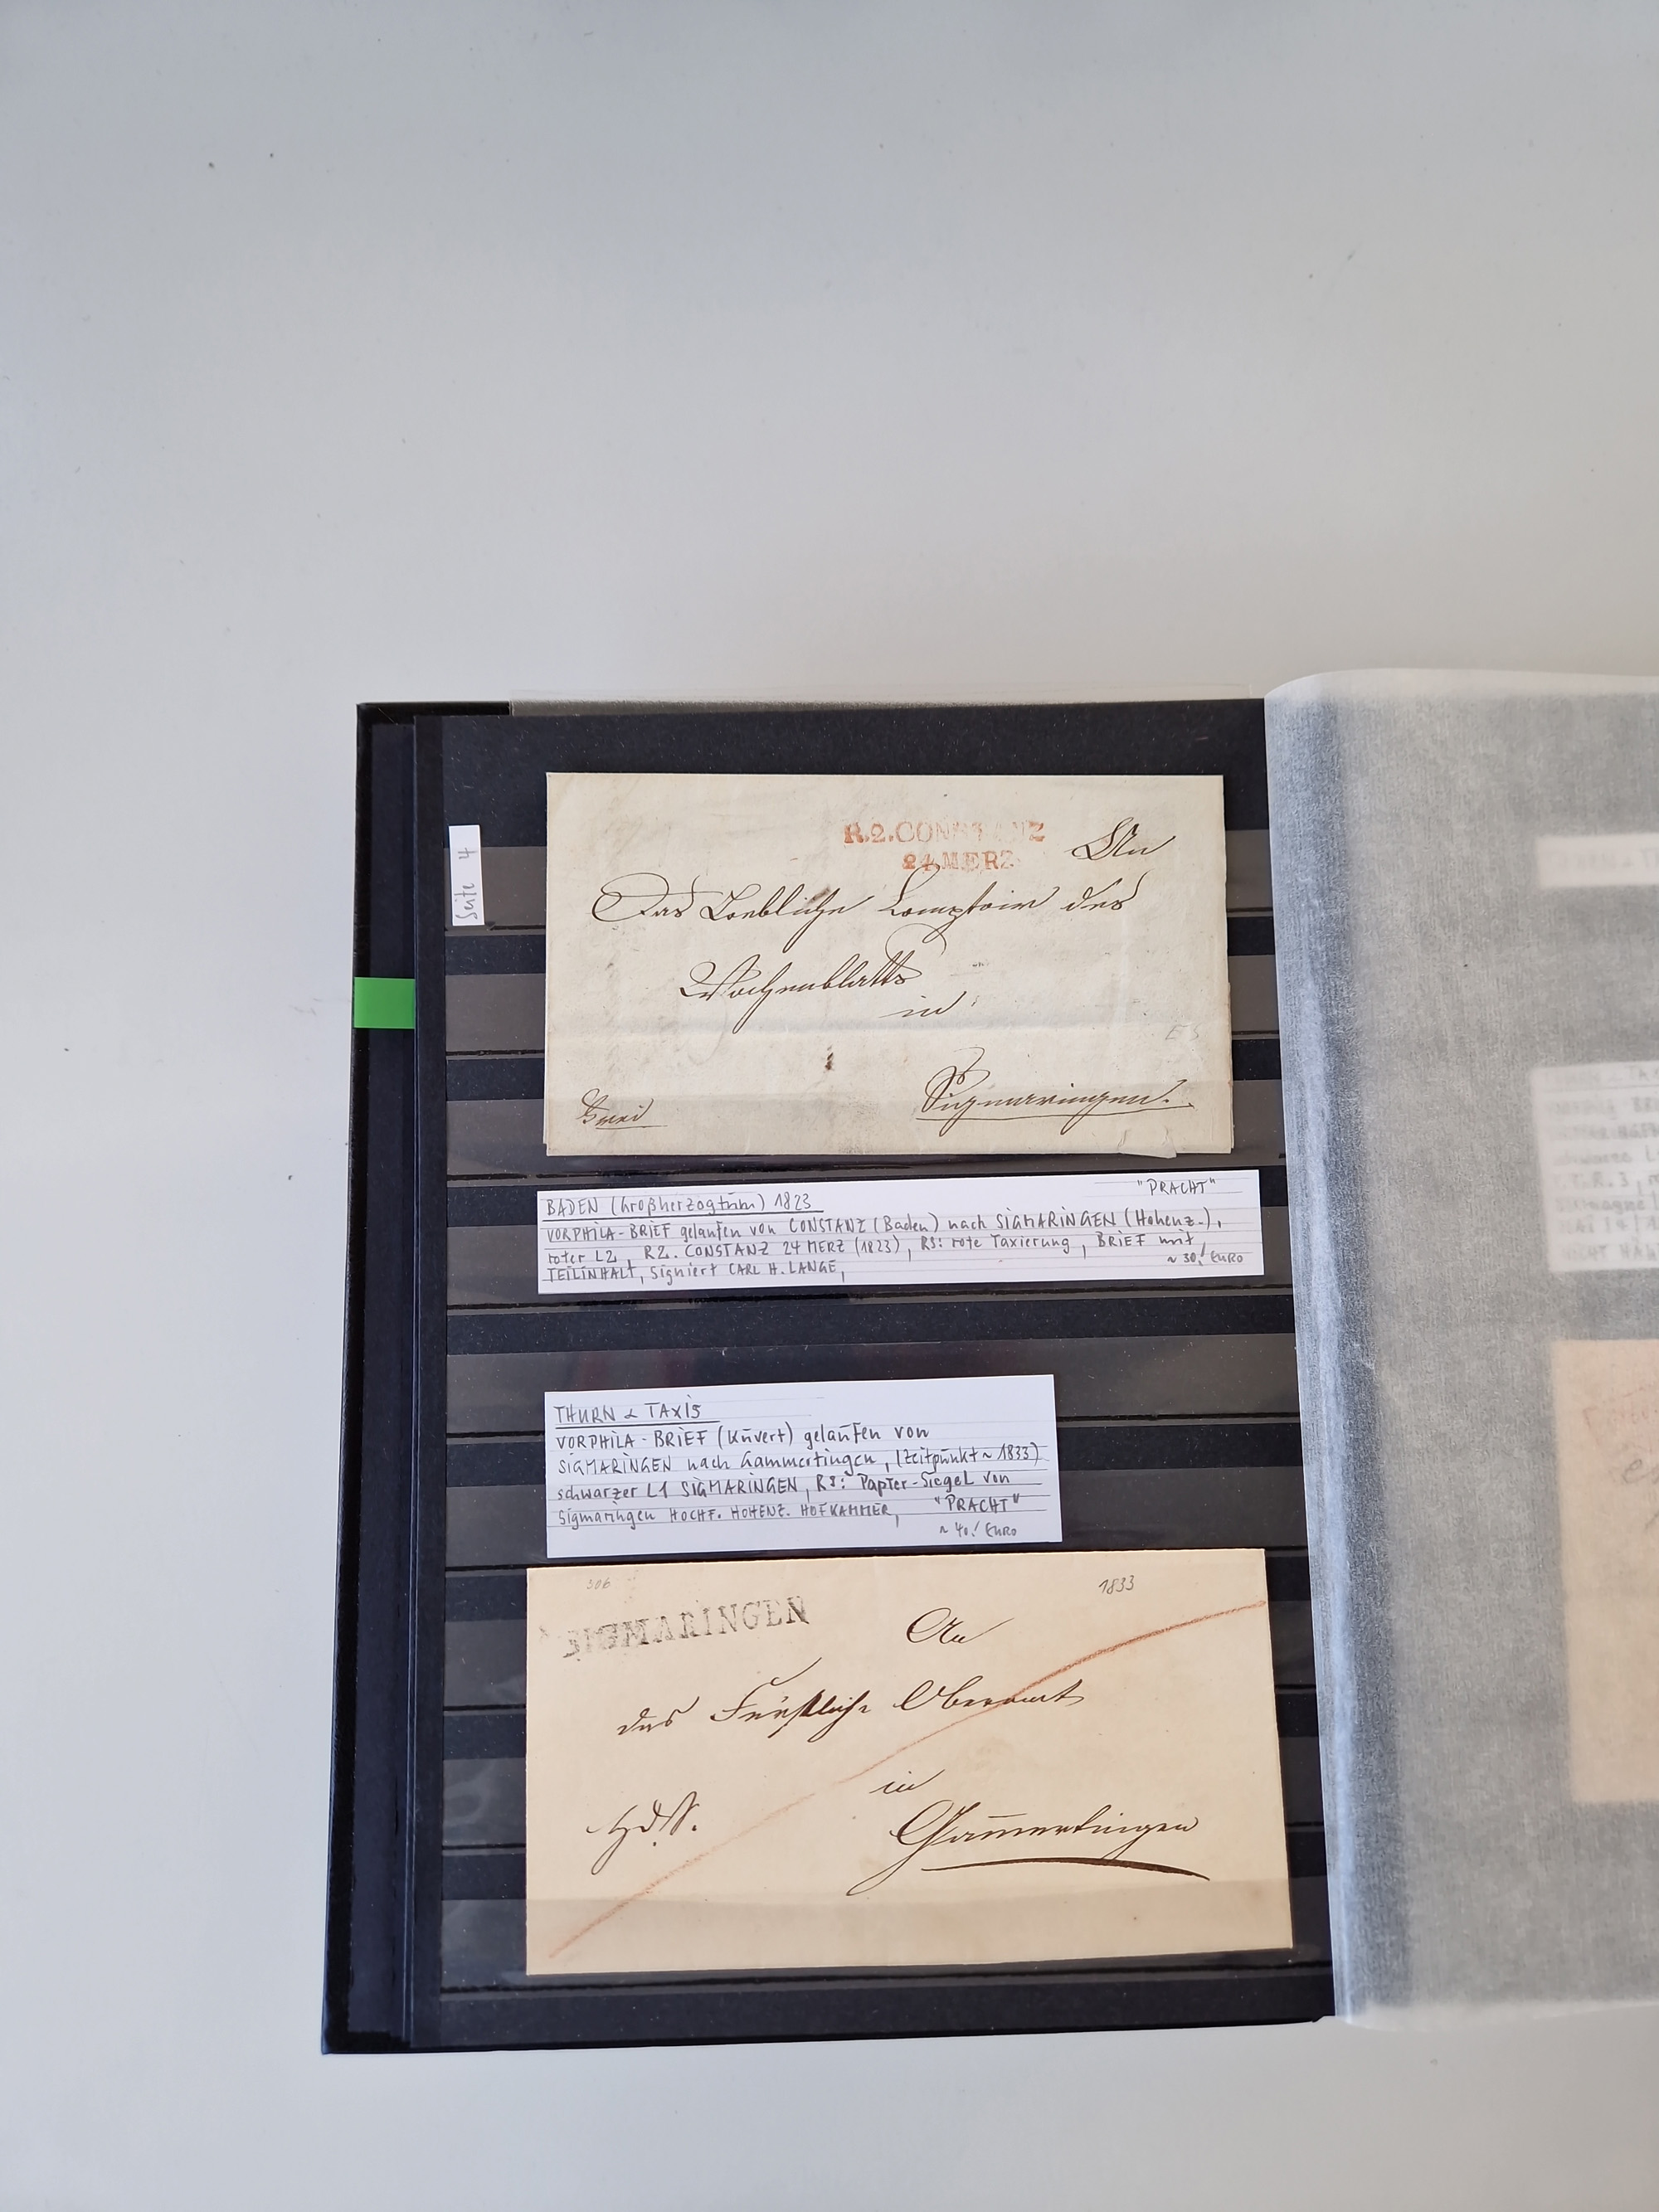 Seite 4
R.2.CONSTANZ
24 MERZ
An
Das Loebliche Comptoir des
Wochenblatts
in
Sigmaringen.
frei
E3
BADEN (Großherzogtum) 1823 "PRACHT"
VORPHILA-BRIEF gelaufen von CONSTANZ (Baden) nach SIGMARINGEN (Hohenz.),
roter L2, R2. CONSTANZ 24 MERZ (1823), RS: rote Taxierung, BRIEF mit
TEILINHALT, signiert CARL H. LANGE, ~ 30,! EURO
THURN & TAXIS
VORPHILA-BRIEF (Kuvert) gelaufen von
SIGMARINGEN nach Gammertingen, (Zeitpunkt ~ 1833)
schwarzer L1 SIGMARINGEN, RS: Papier-Siegel von
Sigmaringen HOCHF. HOHENZ. HOFKAMMER, "PRACHT"
~ 40,! EURO
306
1833
SIGMARINGEN
An
das Fürstliche Oberamt
in
Gam̅ertingen